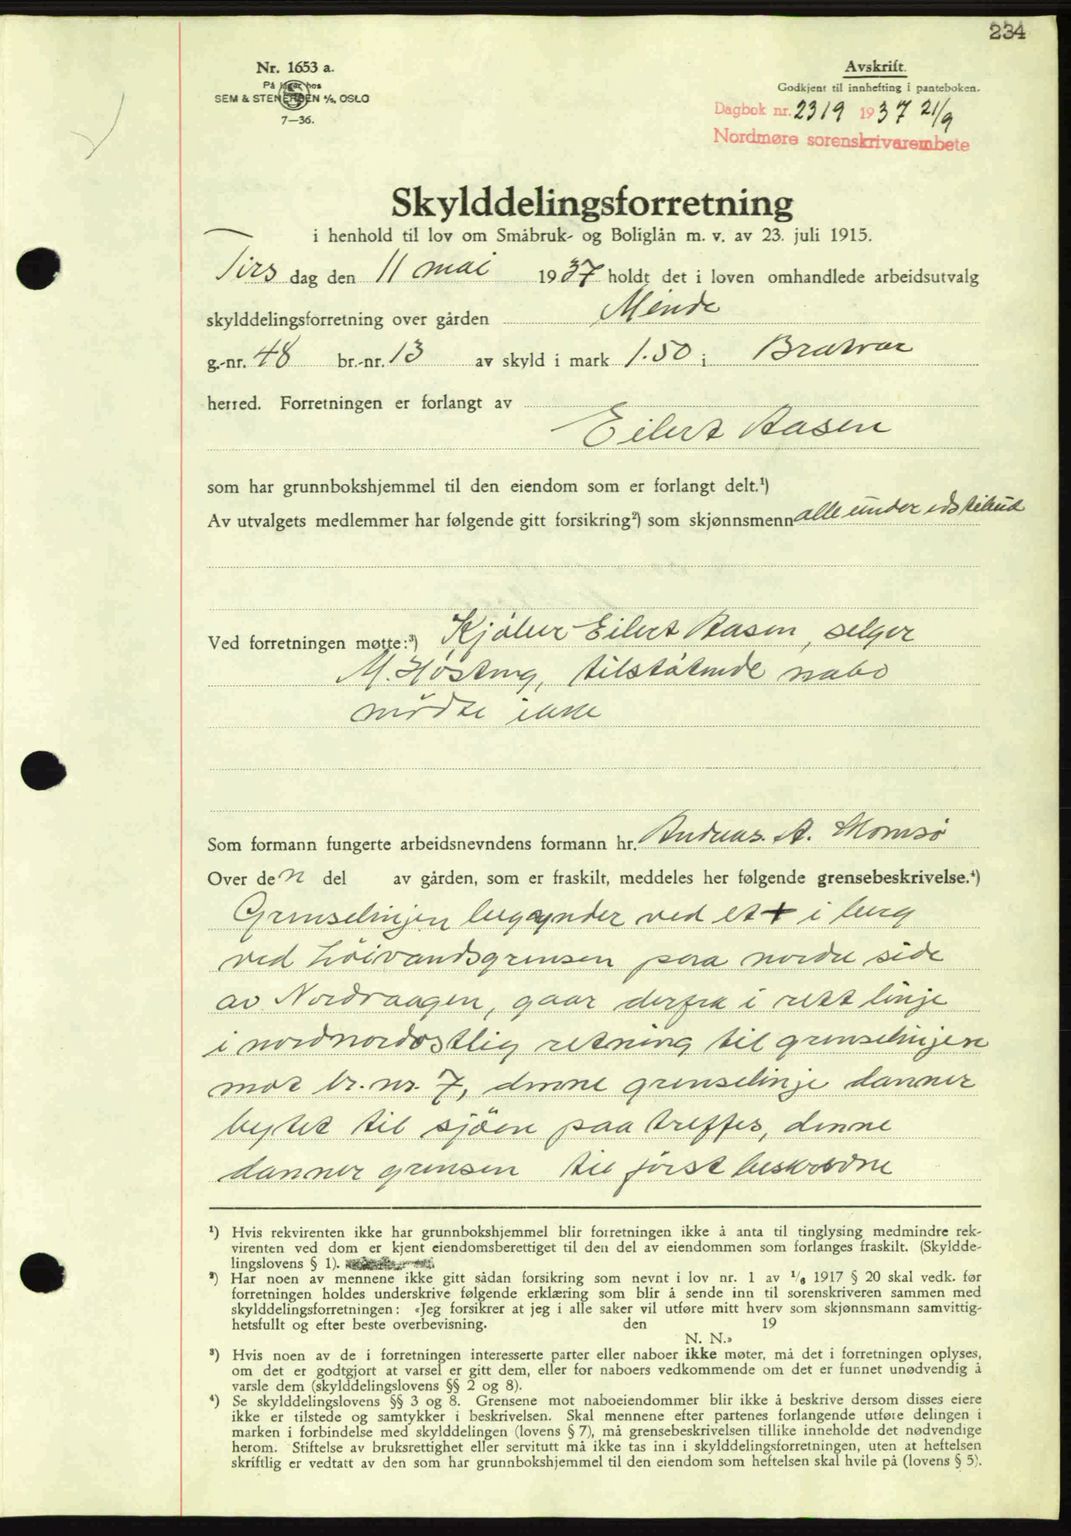 234
Nr. 1653 a.
På lager hos
SEM & STENERSEN A/S, OSLO
7—36.
Avskrift.
Godkjent til innhefting i panteboken.
Dagbok nr. 2319 1937 21/9
Nordmøre sorenskrivarembete
Skylddelingsforretning
i henhold til lov om Småbruk- og Boliglån m. v. av 23. juli 1915.
Tirs dag den 11 mai 1937 holdt det i loven omhandlede arbeidsutvalg
skylddelingsforretning over gården Minde
g.-nr. 48 br.-nr. 13 av skyld i mark 1.50 i Bratvær
herred. Forretningen er forlangt av
Eilert Aasen
som har grunnbokshjemmel til den eiendom som er forlangt delt.¹)
Av utvalgets medlemmer har følgende gitt forsikring²) som skjønnsmenn alle under edstilbud
Ved forretningen møtte:³) Kjöber Eilert Aasen, selger
M. Høstmg, tilstötende nabo
mödte ikke
Som formann fungerte arbeidsnevndens formann hr. Andreas. A.
Over den del av gården, som er fraskilt, meddeles her følgende grensebeskrivelse.⁴)
Grenselinjen begynder ved et + i berg
ved Löivandsgrensen paa nordre side
av Nordvaagen, gaar derfra i rett linje
i nordnordöstlig retning til grenselinjen
mot br. nr. 7, denne grenselinje danner
bytet til sjöen paa treffes, denne
danner grensen til först beskrevne
¹) Hvis rekvirenten ikke har grunnbokshjemmel blir forretningen ikke å anta til tinglysing medmindre rek-
virenten ved dom er kjent eiendomsberettiget til den del av eiendommen som forlanges fraskilt. (Skyldde-
lingslovens § 1).
²) Har noen av mennene ikke gitt sådan forsikring som nevnt i lov nr. 1 av 1/6 1917 § 20 skal vedk. før
forretningen holdes underskrive følgende erklæring som blir å sende inn til sorenskriveren sammen med
skylddelingsforretningen: «Jeg forsikrer at jeg i alle saker vil utføre mitt hverv som skjønnsmann samvittig-
hetsfullt og efter beste overbevisning. den 19
N. N.»
³) Hvis noen av de i forretningen interesserte parter eller naboer ikke møter, må det i forretningen oplyses,
om det er godtgjort at varsel er gitt dem, eller for naboers vedkommende om det er funnet unødvendig å
varsle dem (skylddelingslovens §§ 2 og 8).
⁴) Se skylddelingslovens §§ 3 og 8. Grensene mot naboeiendommer blir ikke å beskrive dersom disses eiere
ikke er tilstede og samtykker i beskrivelsen. Skal mennene efter partenes forlangende utføre delingen i
marken i forbindelse med skylddelingen (lovens § 7), må grensebeskrivelsen tillike inneholde det nødvendige
herom. Stiftelse av bruksrettighet eller servitutt må ikke tas inn i skylddelingsforretningen, uten at heftelsen
skriftlig er vedtatt av den som har grunnbokshjemmel til den eiendom som heftelsen skal hvile på (lovens § 5).